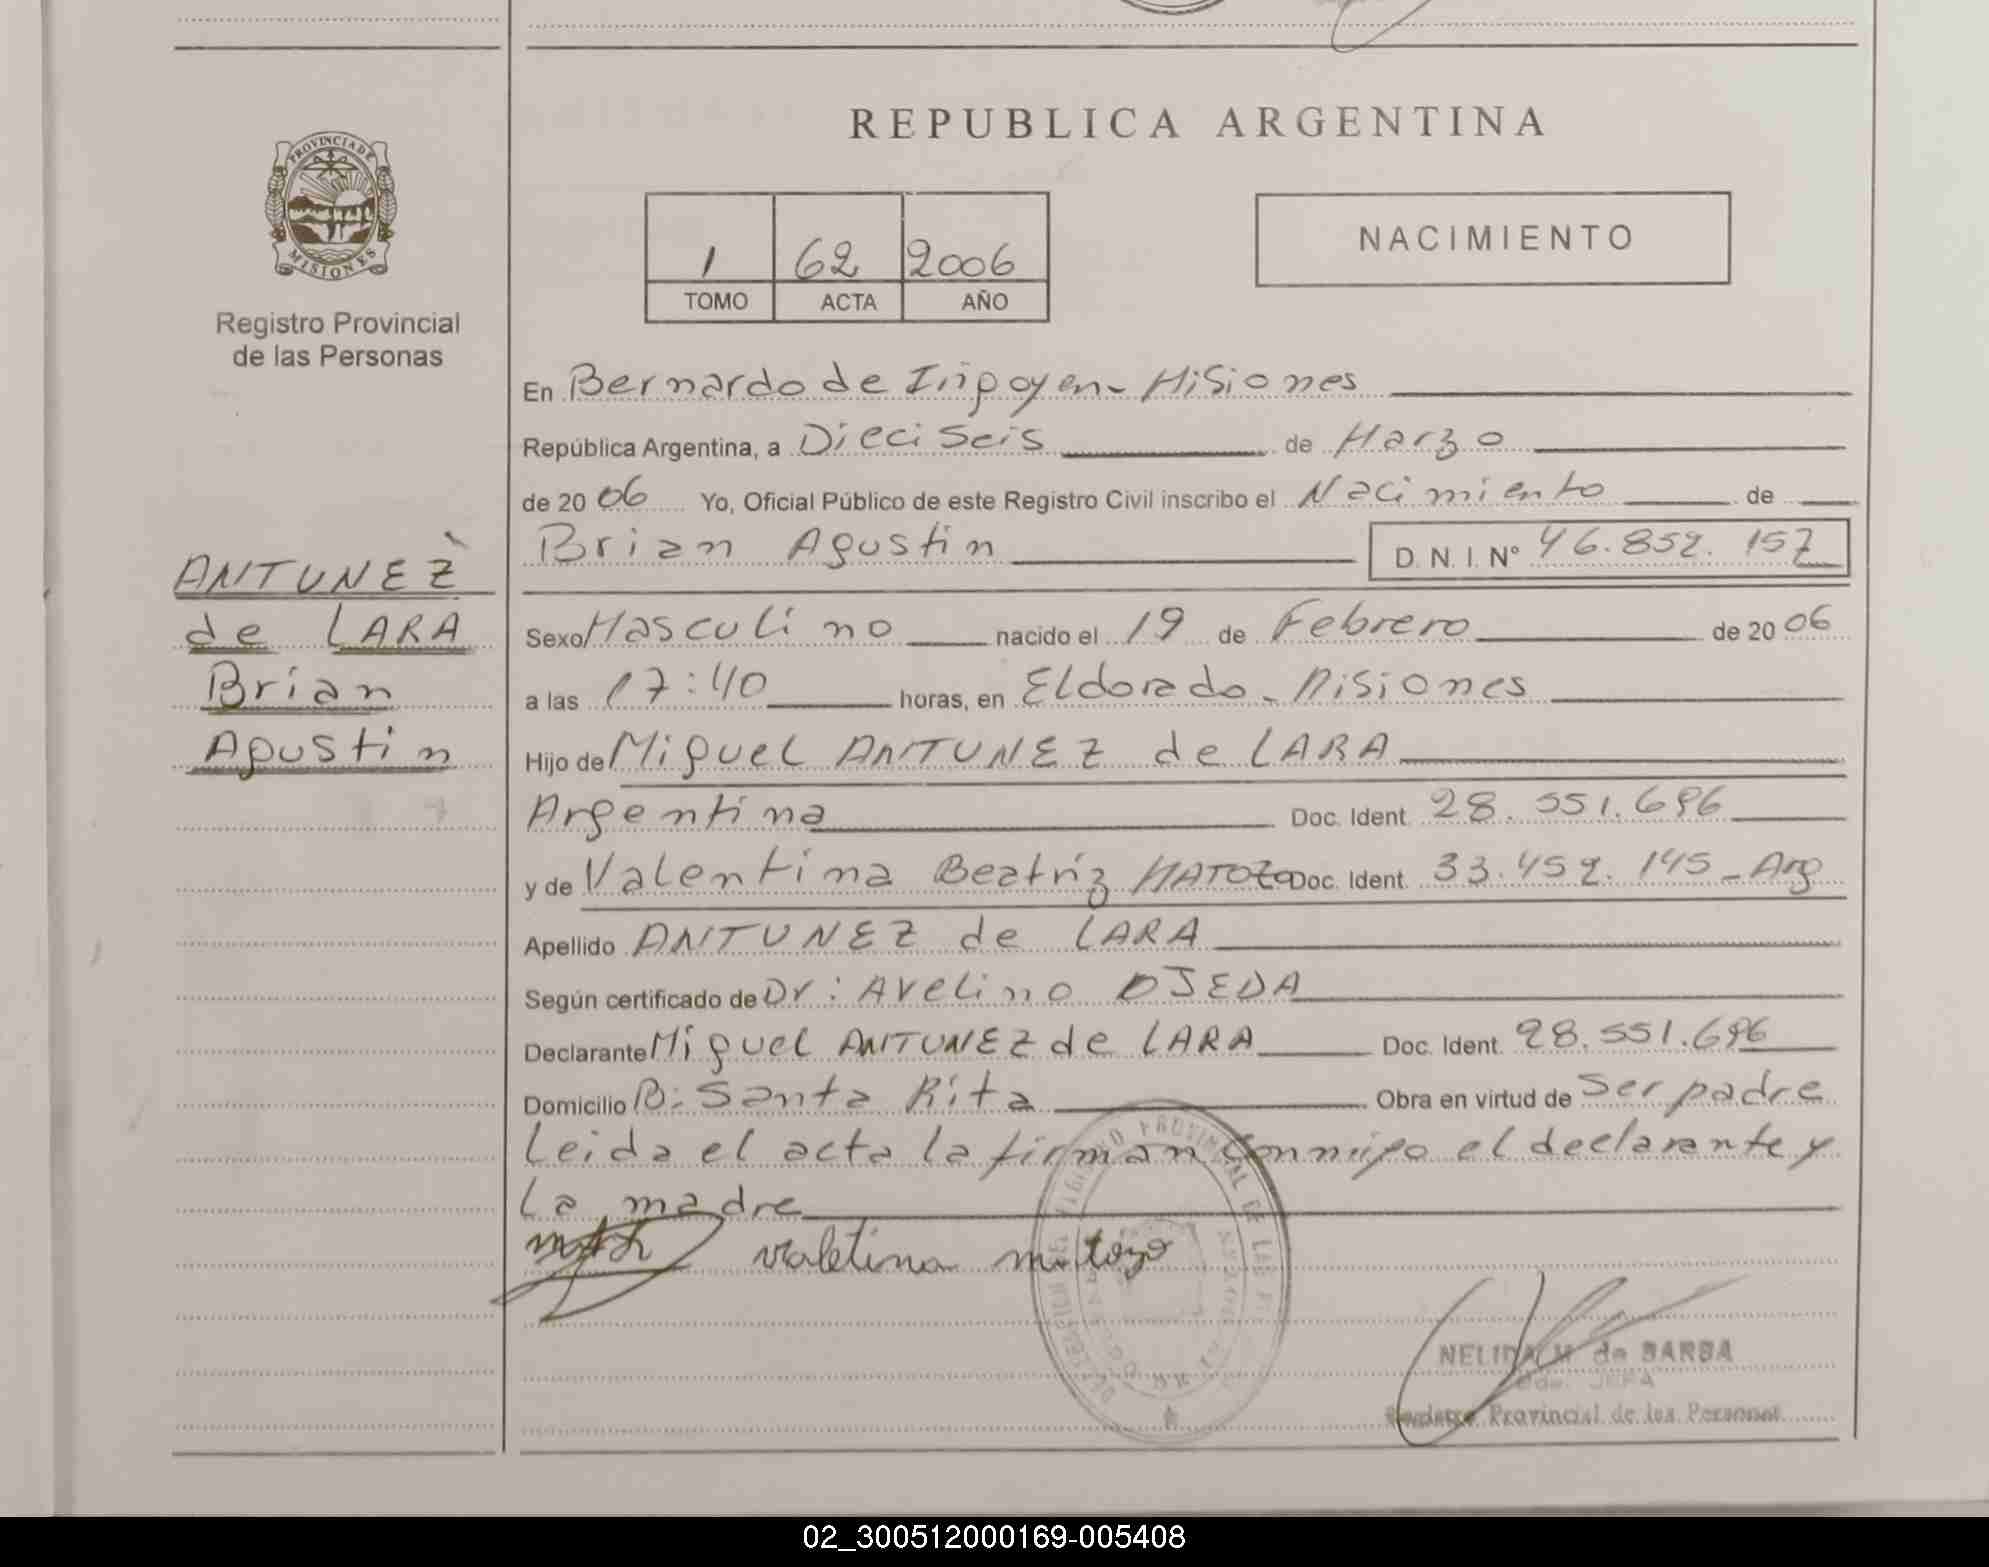 REPUBLICA ARGENTINA
PROVINCIA DE MISIONES
Registro Provincial
de las Personas
1 62 2006
TOMO ACTA AÑO
NACIMIENTO
ANTUNEZ
de LARA
Brian
Agustin
En Bernardo de Irigoyen - Misiones
República Argentina, a Dieciseis de Marzo
de 2006 Yo, Oficial Público de este Registro Civil inscribo el Nacimiento de
Brian Agustin D. N. I. Nº 46.852.157
Sexo Masculino nacido el 19 de Febrero de 2006
a las 17:40 horas, en Eldorado - Misiones
Hijo de Miguel ANTUNEZ de LARA
Argentina Doc. Ident. 28.551.696
y de Valentina Beatriz MATOZO Doc. Ident. 33.452.145 - Arg
Apellido ANTUNEZ de LARA
Según certificado de Dr: Avelino OJEDA
Declarante Miguel ANTUNEZ de LARA Doc. Ident. 28.551.696
Domicilio B: Santa Rita Obra en virtud de Ser padre
Leida el acta la firman conmigo el declarante y
la madre
valetina matozo
NELIDA M de BARBA
JEFA
Registro Provincial de las Personas
02_300512000169-005408